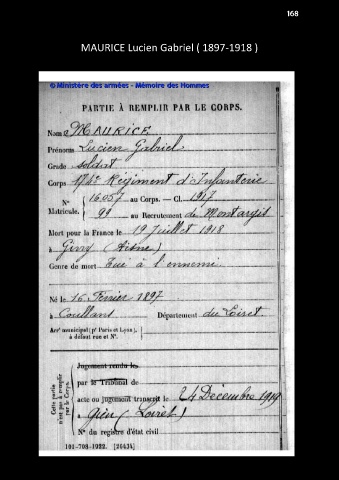 168
MAURICE Lucien Gabriel ( 1897-1918 )
© Ministère des armées - Mémoire des Hommes
PARTIE À REMPLIR PAR LE CORPS.
Nom MAURICE
Prénoms Lucien Gabriel
Grade soldat
Corps 174e Régiment d'Infanterie
N° Matricule. { 16.057 au Corps. — Cl. 1917
99 au Recrutement de Montargis
Mort pour la France le 19 Juillet 1918
à (Aisne)
Genre de mort Tué à l'ennemi
Né le 16 Février 1897
à Coullons Département du Loiret
Arr' municipal (p' Paris et Lyon), à défaut rue et N°.
Cette partie n'est pas à remplir par le Corps.
Jugement rendu les
par le Tribunal de
acte ou jugement transcrit le 24 Décembre 1919
à Gien (Loiret)
N° du registre d'état civil
101-708-1922. [26434]